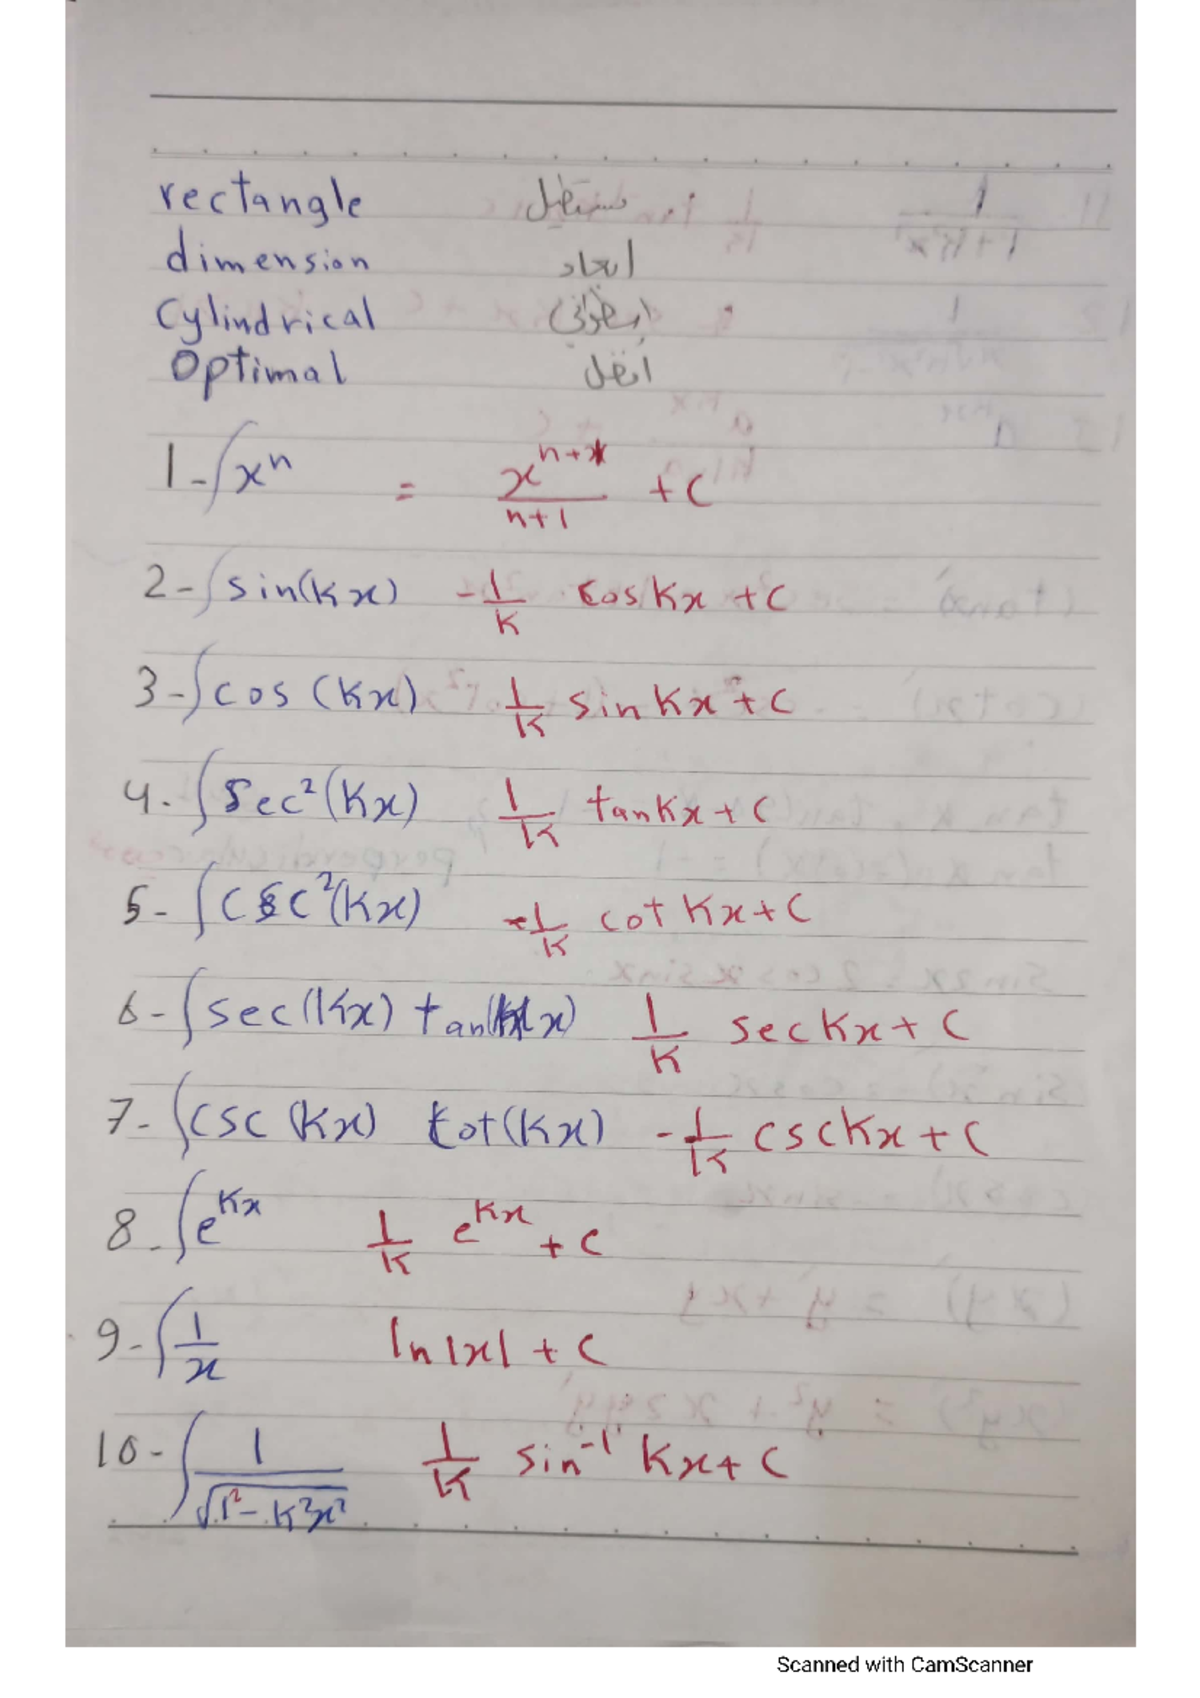 rectangle مستطيل
dimension ابعاد
Cylindrical اسطواني
Optimal افضل
1- ∫x^n = x^(n+1)/(n+1) + C
2- ∫sin(Kx) -1/K cos Kx + C
3- ∫cos (Kx) 1/K sin Kx + C
4. ∫sec²(Kx) 1/K tan Kx + C
5- ∫csc²(Kx) -1/K cot Kx + C
6- ∫sec(Kx) tan(Kx) 1/K sec Kx + C
7- ∫csc (Kx) cot(Kx) -1/K csc Kx + C
8- ∫e^(Kx) 1/K e^(Kx) + C
9- ∫1/x ln|x| + C
10- ∫1/√(1²-K²x²) 1/K sin⁻¹ Kx + C
Scanned with CamScanner